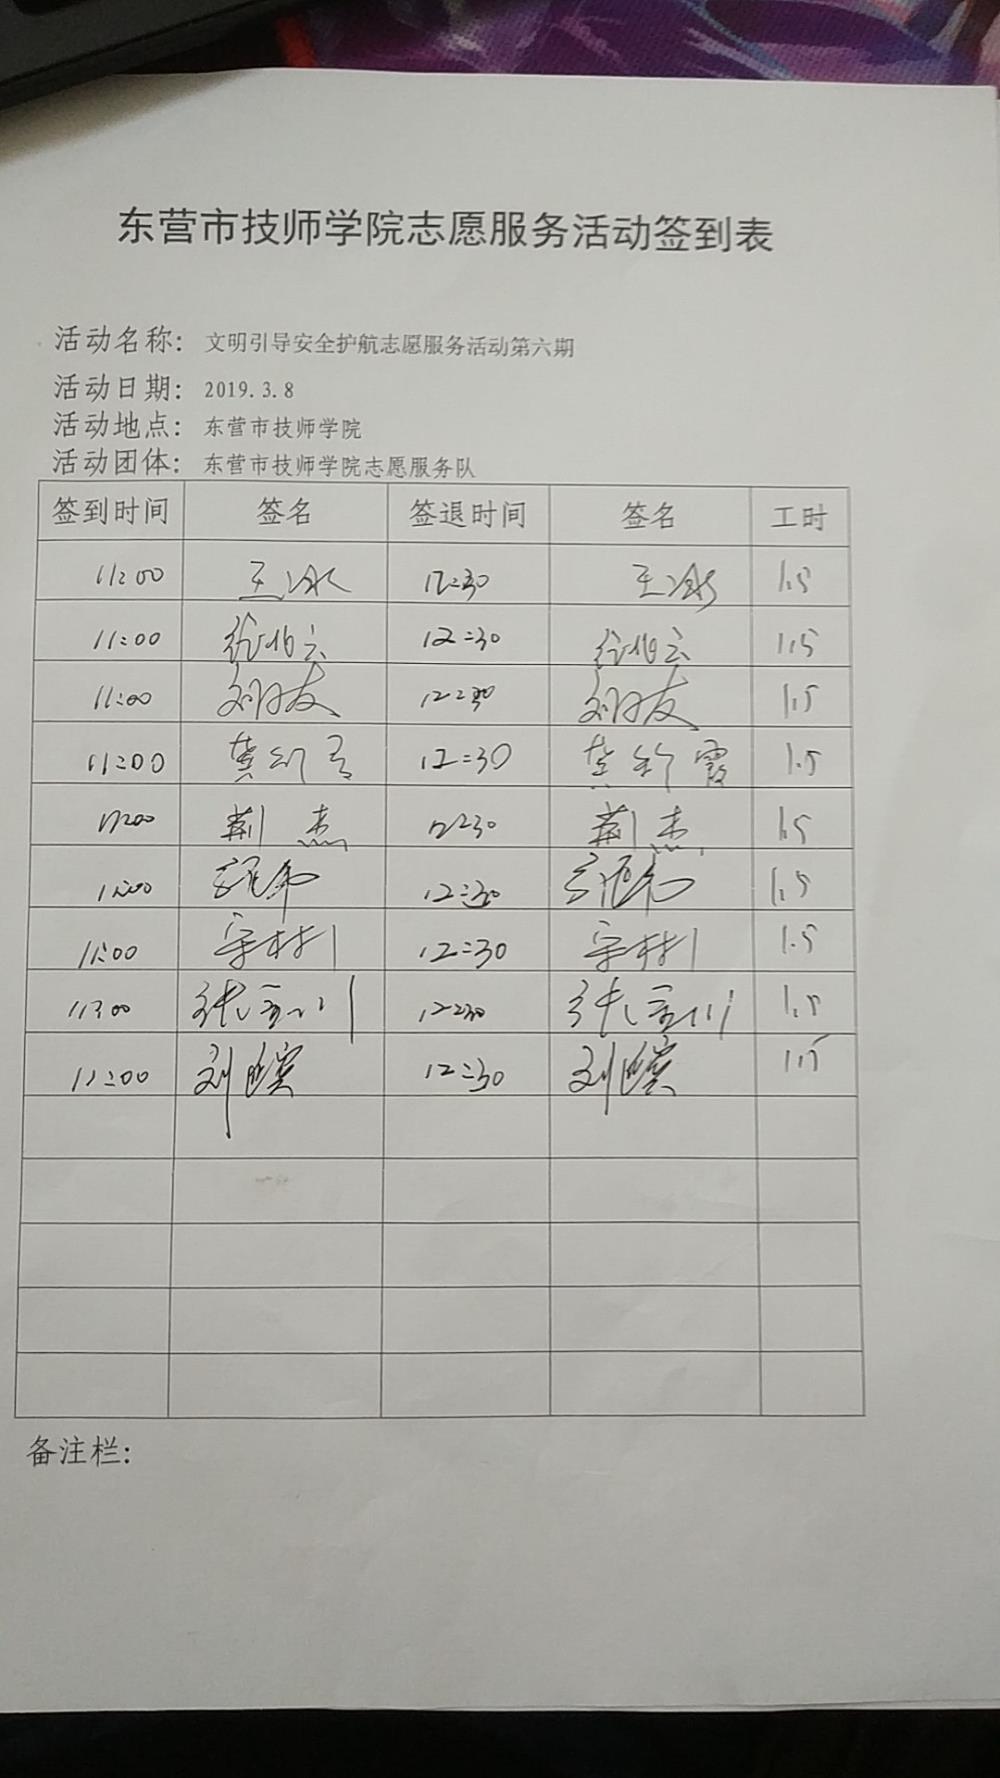 东营市技师学院志愿服务活动签到表
活动名称: 文明引导安全护航志愿服务活动第六期
活动日期: 2019.3.8
活动地点: 东营市技师学院
活动团体: 东营市技师学院志愿服务队
签到时间 签名 签退时间 签名 工时
11:00 王冰 12:30 王冰 1.5
11:00 12:30 1.5
11:00 12:30 1.5
11:00 12:30 1.5
11:00 荆杰 12:30 荆杰 1.5
11:00 12:30 1.5
11:00 12:30 1.5
11:00 12:30 1.5
11:00 刘 12:30 刘 1.5
备注栏: